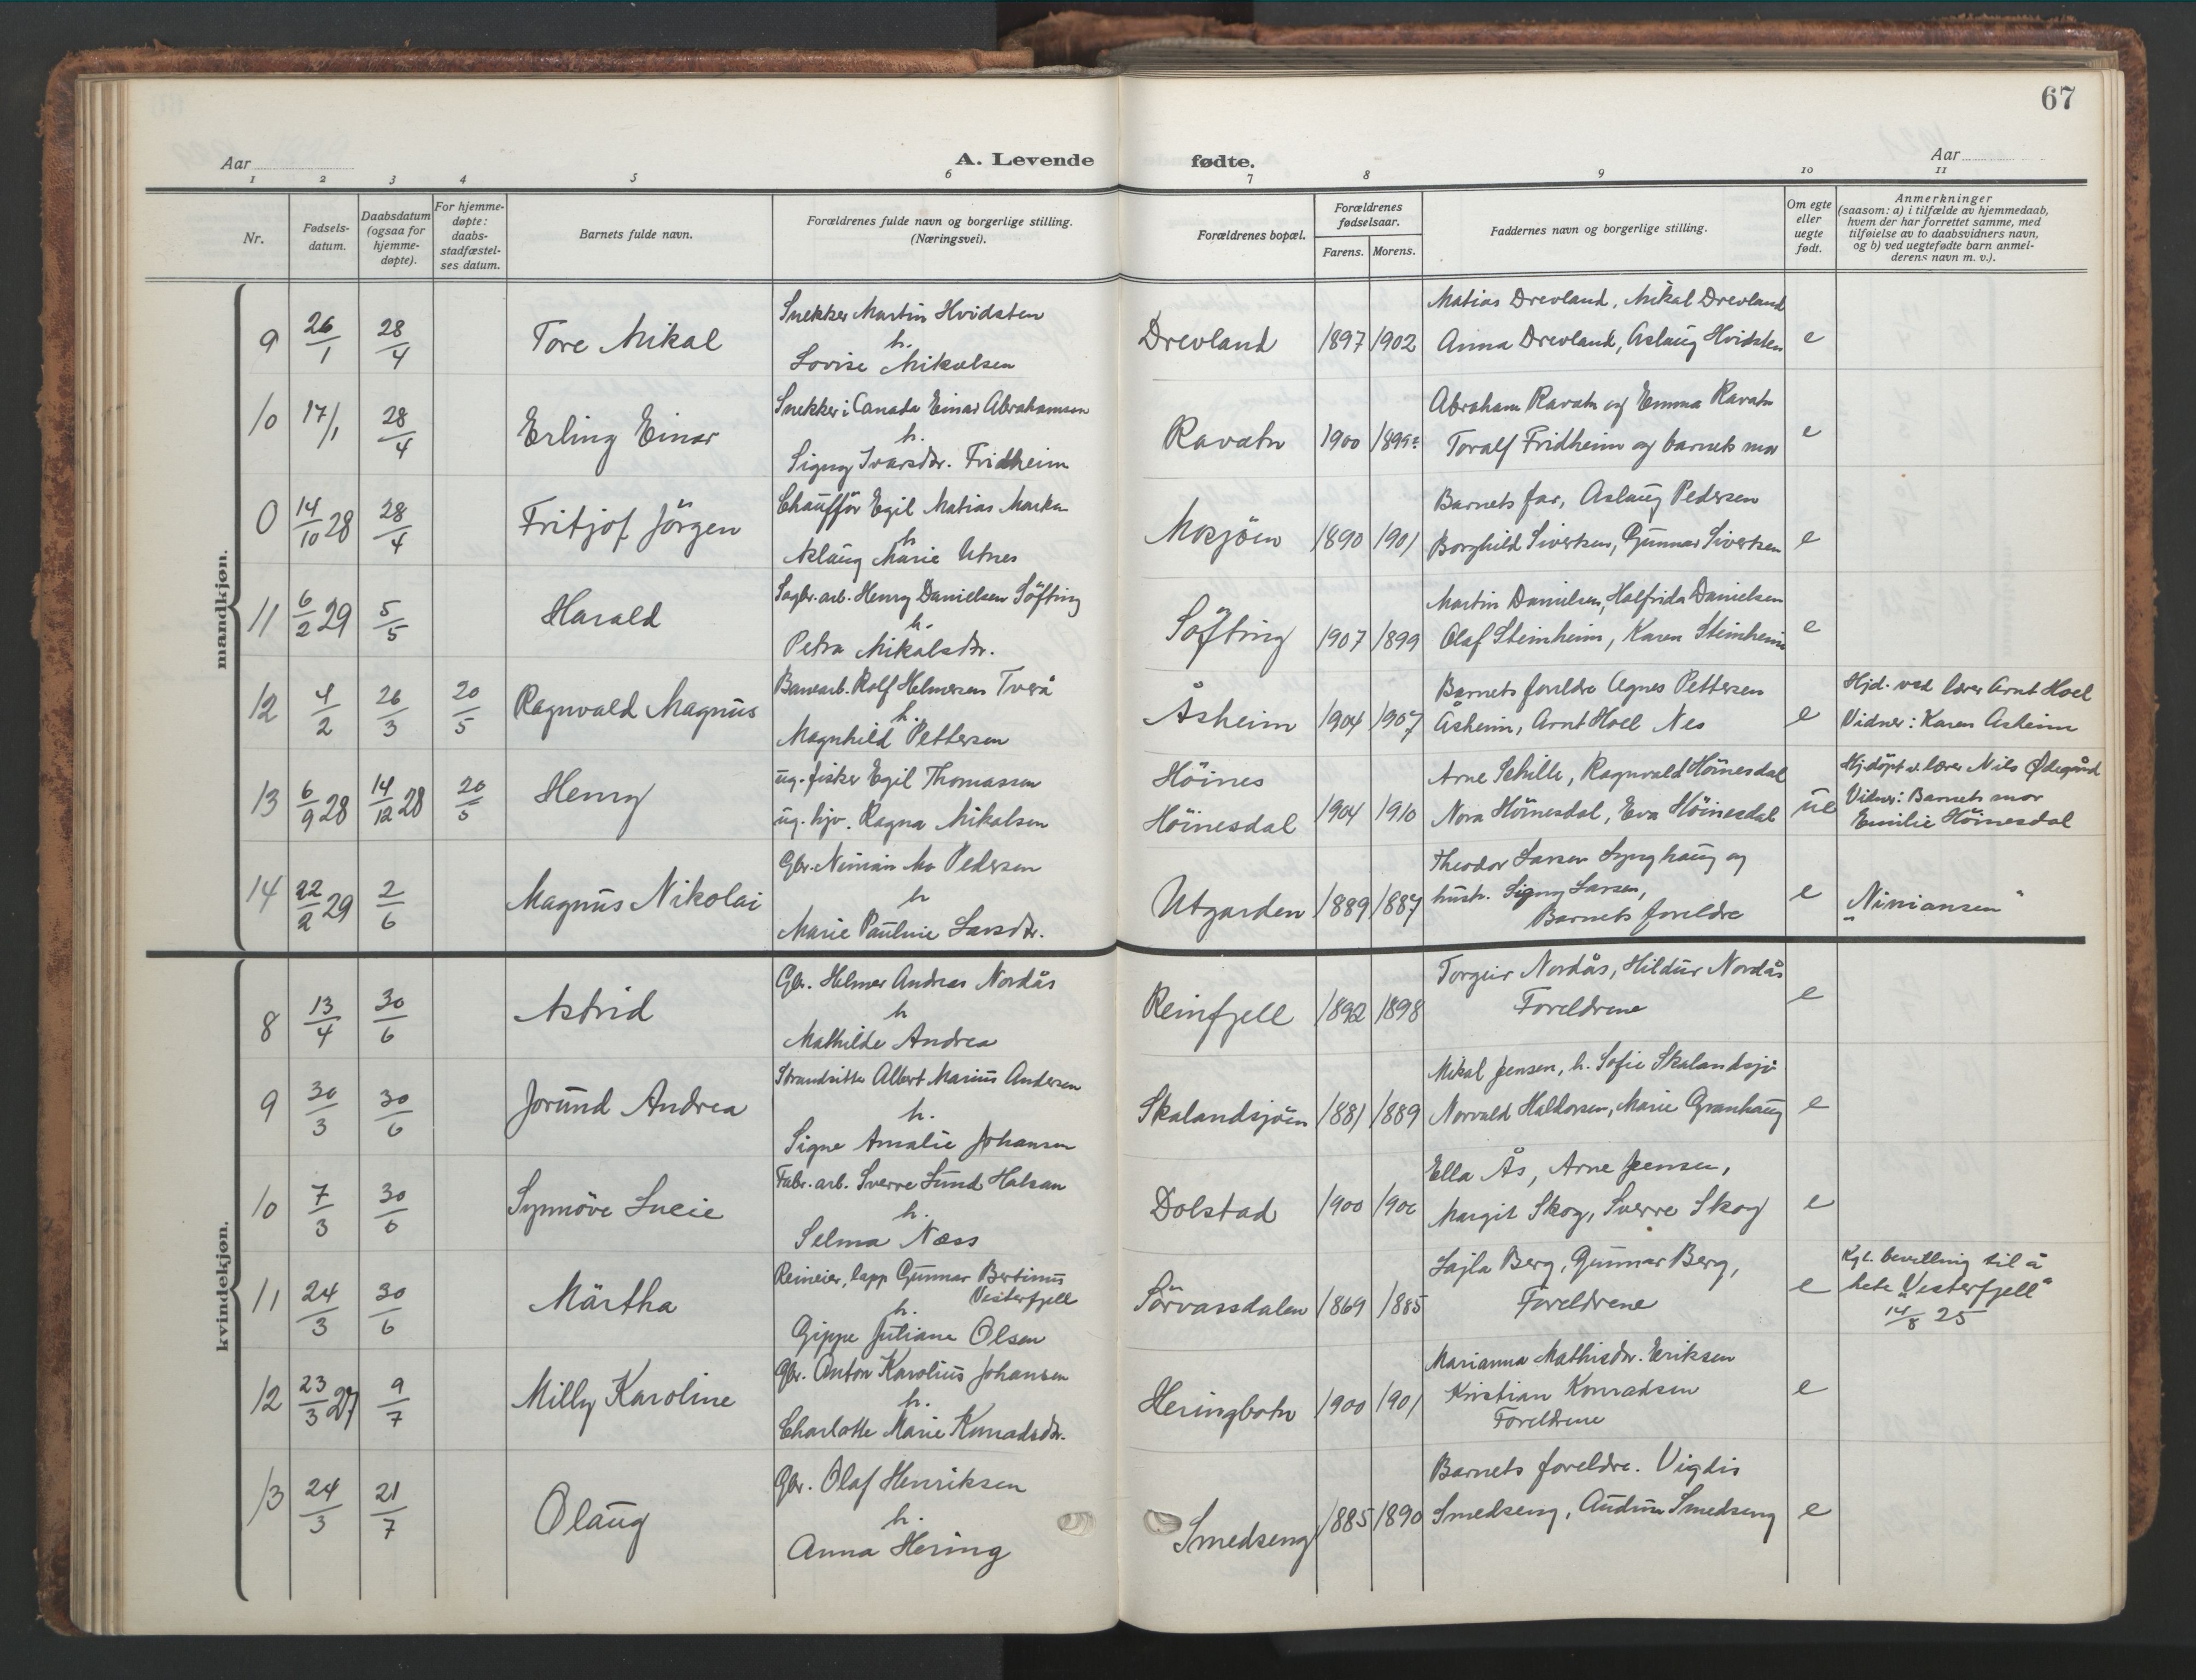 67
Aar
A. Levende fødte.
Aar
1 2 3 4 5 6 7 8 9 10 11
Nr.
Fødsels-
datum.
Daabsdatum
(ogsaa for
hjemme-
døpte).
For hjemme-
døpte:
daabs-
stadfæstel-
ses datum.
Barnets fulde navn.
Forældrenes fulde navn og borgerlige stilling.
(Næringsvei).
Forældrenes bopæl.
Forældrenes
fødselsaar.
Farens. Morens.
Faddernes navn og borgerlige stilling.
Om egte
eller
uegte
født.
Anmerkninger
(saasom: a) i tilfælde av hjemmedaab,
hvem der har forrettet samme, med
tilføielse av to daabsvidners navn,
og b) ved uegtefødte barn anmel-
derens navn m. v.).
mandkjøn.
9 26/1 28/4 Tore Mikal
Snekker Martin Hvidsten
h.
Lovise Mikalsen
Drevland 1897 1902
Matias Drevland, Mikal Drevland
Anna Drevland, Aslaug Hvidsten
e
10 17/1 28/4 Erling Einar
Snekker i Canada Einar Abrahamsen
h.
Signy Ivarsdr. Fridheim
Ravatn 1900 1899
Abraham Ravatn og Emma Ravatn
Toralf Fridheim og barnets mor
e
0 14/10 28 28/4 Fritjof Jörgen
Chaufför Egil Matias
h
Aslaug Marie Utnes
Mosjöen 1890 1901
Barnets far, Aslaug Pedersen
Borghild Sivertsen, Gunnar Sivertsen
e
11 6/2 29 5/5 Harald
Sagbr. arb. Henry Danielsen Söfting
h.
Petra Mikalsdr.
Söfting 1907 1899
Martin Danielsen, Halfrida Danielsen
Olaf Steinheim, Karen Steinheim
e
12 4/2 26/3 20/5 Ragnvald Magnus
Banearb. Rolf Helmersen Tverå
h.
Magnhild Pettersen
Åsheim 1904 1907
Barnets foreldre Agnes Pettersen
Åsheim, Arnt Hoel Nes
e
Hjd. ved lærer Arnt Hoel
Vidner: Karen Åsheim
13 6/9 28 14/12 28 20/5 Henry
ug. fisker Egil Thomassen
ug. hjv. Ragna Mikalsen
Höines
Höinesdal
1904 1910
Arne Schille, Ragnvald Höinesdal
Nora Höinesdal, Eva Höinesdal
ue
Hj. döpt v. lærer Nils Ødegård
Vidner: Barnets mor
Emilie Höinesdal
14 22/2 29 2/6 Magnus Nikolai
Gbr. Ninian Mo Pedersen
h
Marie Pauline Larsdr.
Utgarden 1889 1887
Theodor Larsen Lynghaug og
hustr. Signy Larsen,
Barnets foreldre
e
„Niniansen“
kvindekjøn.
8 13/4 30/6 Astrid
Gbr. Helmer Andreas Nordås
h
Mathilde Andrea
Reinfjell 1892 1898
Torgeir Nordås, Hildur Nordås
Foreldrene
e
9 30/3 30/6 Jorund Andrea
Strandsitter Albert Marius Andersen
h.
Signe Amalie Johansen
Skalandsjöen 1881 1889
Mikal Jensen, h. Sofie Skalandsjö
Norvald Haldorsen, Marie Granhaug
e
10 7/3 30/6 Synnöve Lucie
Fabr. arb. Sverre Lund Halsan
h.
Selma Næss
Dolstad 1900
Ella Ås, Arne Jensen,
Margit Skog, Sverre Skog
e
11 24/3 30/6 Märtha
Reineier, lapp Gunnar Bertinus
Vesterfjell
h.
Gippe Juliane Olsen
Sörvassdalen 1869 1885
Lajla Berg, Gunnar Berg,
Foreldrene
e
Kgl. bevilling til å
hete „Vesterfjell“
14/8 25
12 23/3 27 9/7 Milly Karoline
Gbr. Anton Karolius Johansen
h.
Charlotte Marie Konradsdr.
Heringbotn 1900 1901
Marianna Mathisdr. Eriksen
Kristian Konradsen
Foreldrene
e
13 24/3 21/7 Olaug
Gbr. Olaf Henriksen
h.
Anna Hering
Smedseng 1885 1890
Barnets foreldre. Vigdis
Smedseng, Audun Smedseng
e